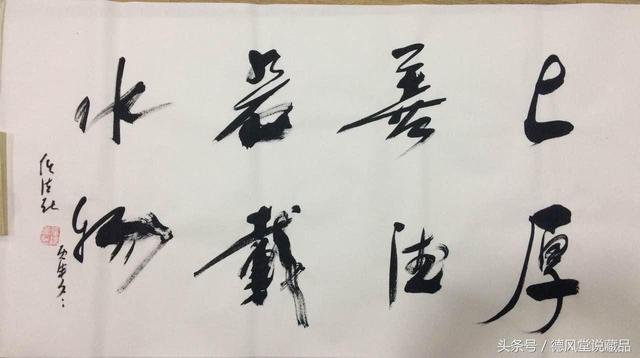 上善若水
厚德載物
头条号／德风堂说藏品